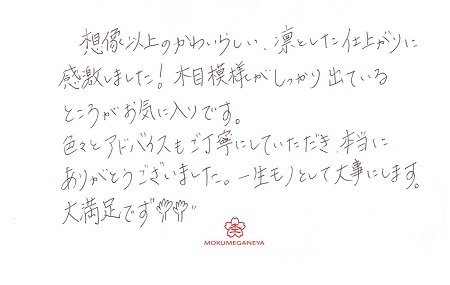 想像以上のかわいらしい、凛とした仕上がりに
感激しました！木目模様がしっかり出ている
ところがお気に入りです。
色々とアドバイスもご丁寧にしていただき、本当に
ありがとうございました。一生モノとして大事にします。
大満足です
MOKUMEGANEYA